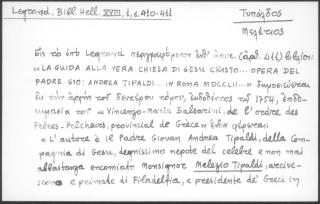 Legrand, Bibl. Hell. XVIII, 1, s. 410-411
Τυπάλδος
Μελέτιος
Εις το υπό Legrand περιγραφόμενον υπ' όψιν (αριθ. 411) βιβλίον:
«LA GUIDA ALLA VERA CHIESA DI GESU CRISTO... OPERA DEL
PADRE GIO: ANDREA TIPALDI... IN ROMA MDCCLII...» δημοσιεύεται
εν τη αρχή του δευτέρου τόμου, εκδοθέντος τω 1754,
του «Vincenzo-Maria Balsarini de l'ordre des
Frères-Prêcheurs, provincial de Grèce»
«L'autore è il Padre Giovan Andrea Tipaldi, della Com-
pagnia di Gesu, degnissimo nepote del celebre e non mai
abbastanza encomiato Monsignor Melezio Tipaldi, arcive-
scovo e primate di Filadelfia, e presidente de' Greci in